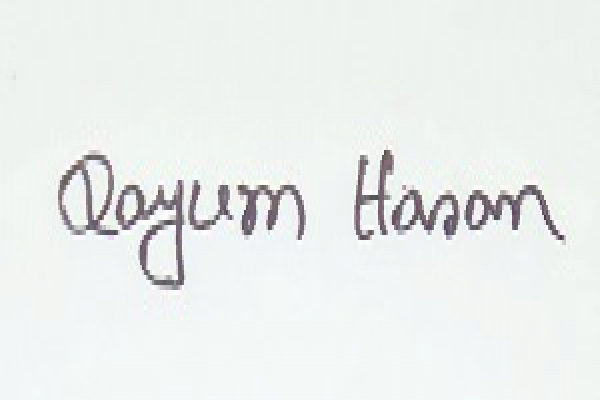 Qayum Hasan